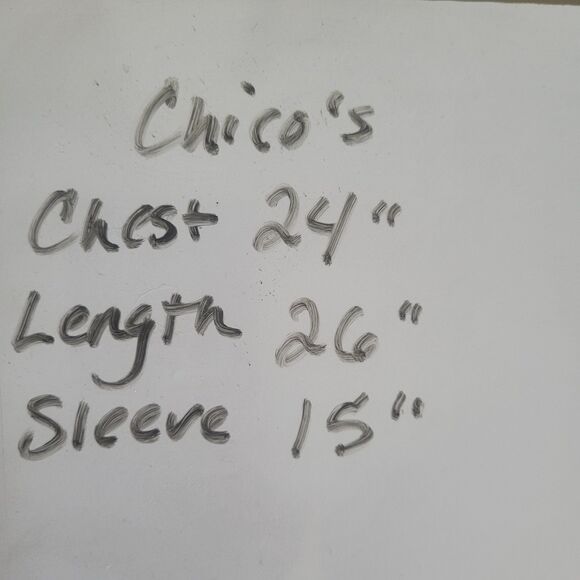 Chico's
Chest 24"
Length 26"
Sleeve 15"